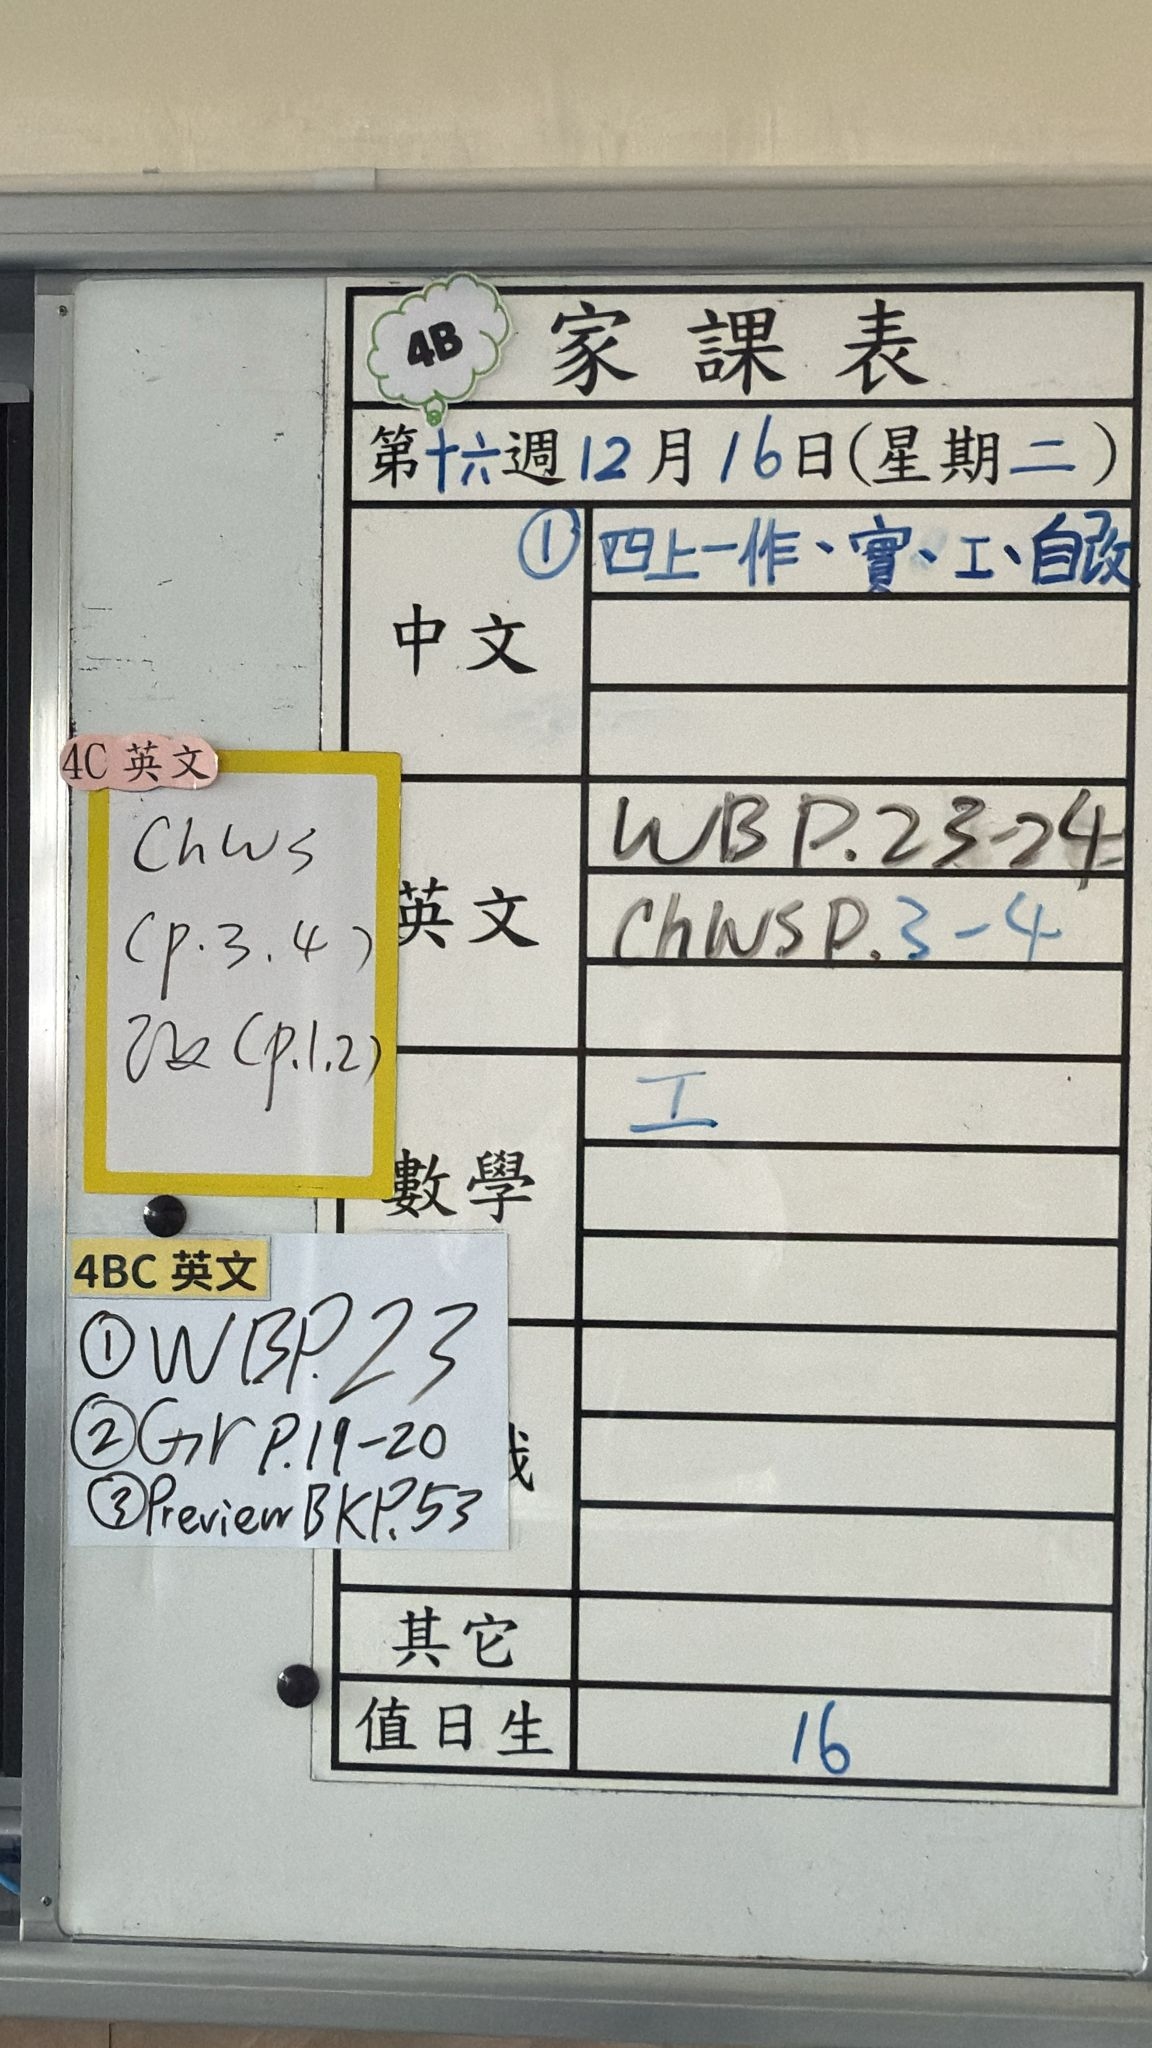 4B 家課表
第十六週12月16日(星期二)
中文
① 四上一作、實、工、自改
英文
WB P.23-24
ChWS P.3-4
數學
工
其它
值日生 16
4C 英文
ChWS
(p.3.4)
改(p.1.2)
4BC 英文
①WB P.23
②Gr P.19-20
③Preview BK P.53